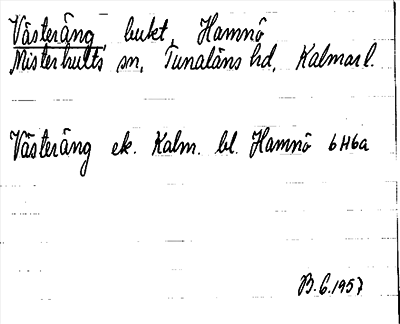 Västeräng, bukt, Hamnö
Misterhults sn, Tunaläns hd, Kalmar l.
Västeräng ek. Kalm. bl. Hamnö 6H6a
B.G. 1957